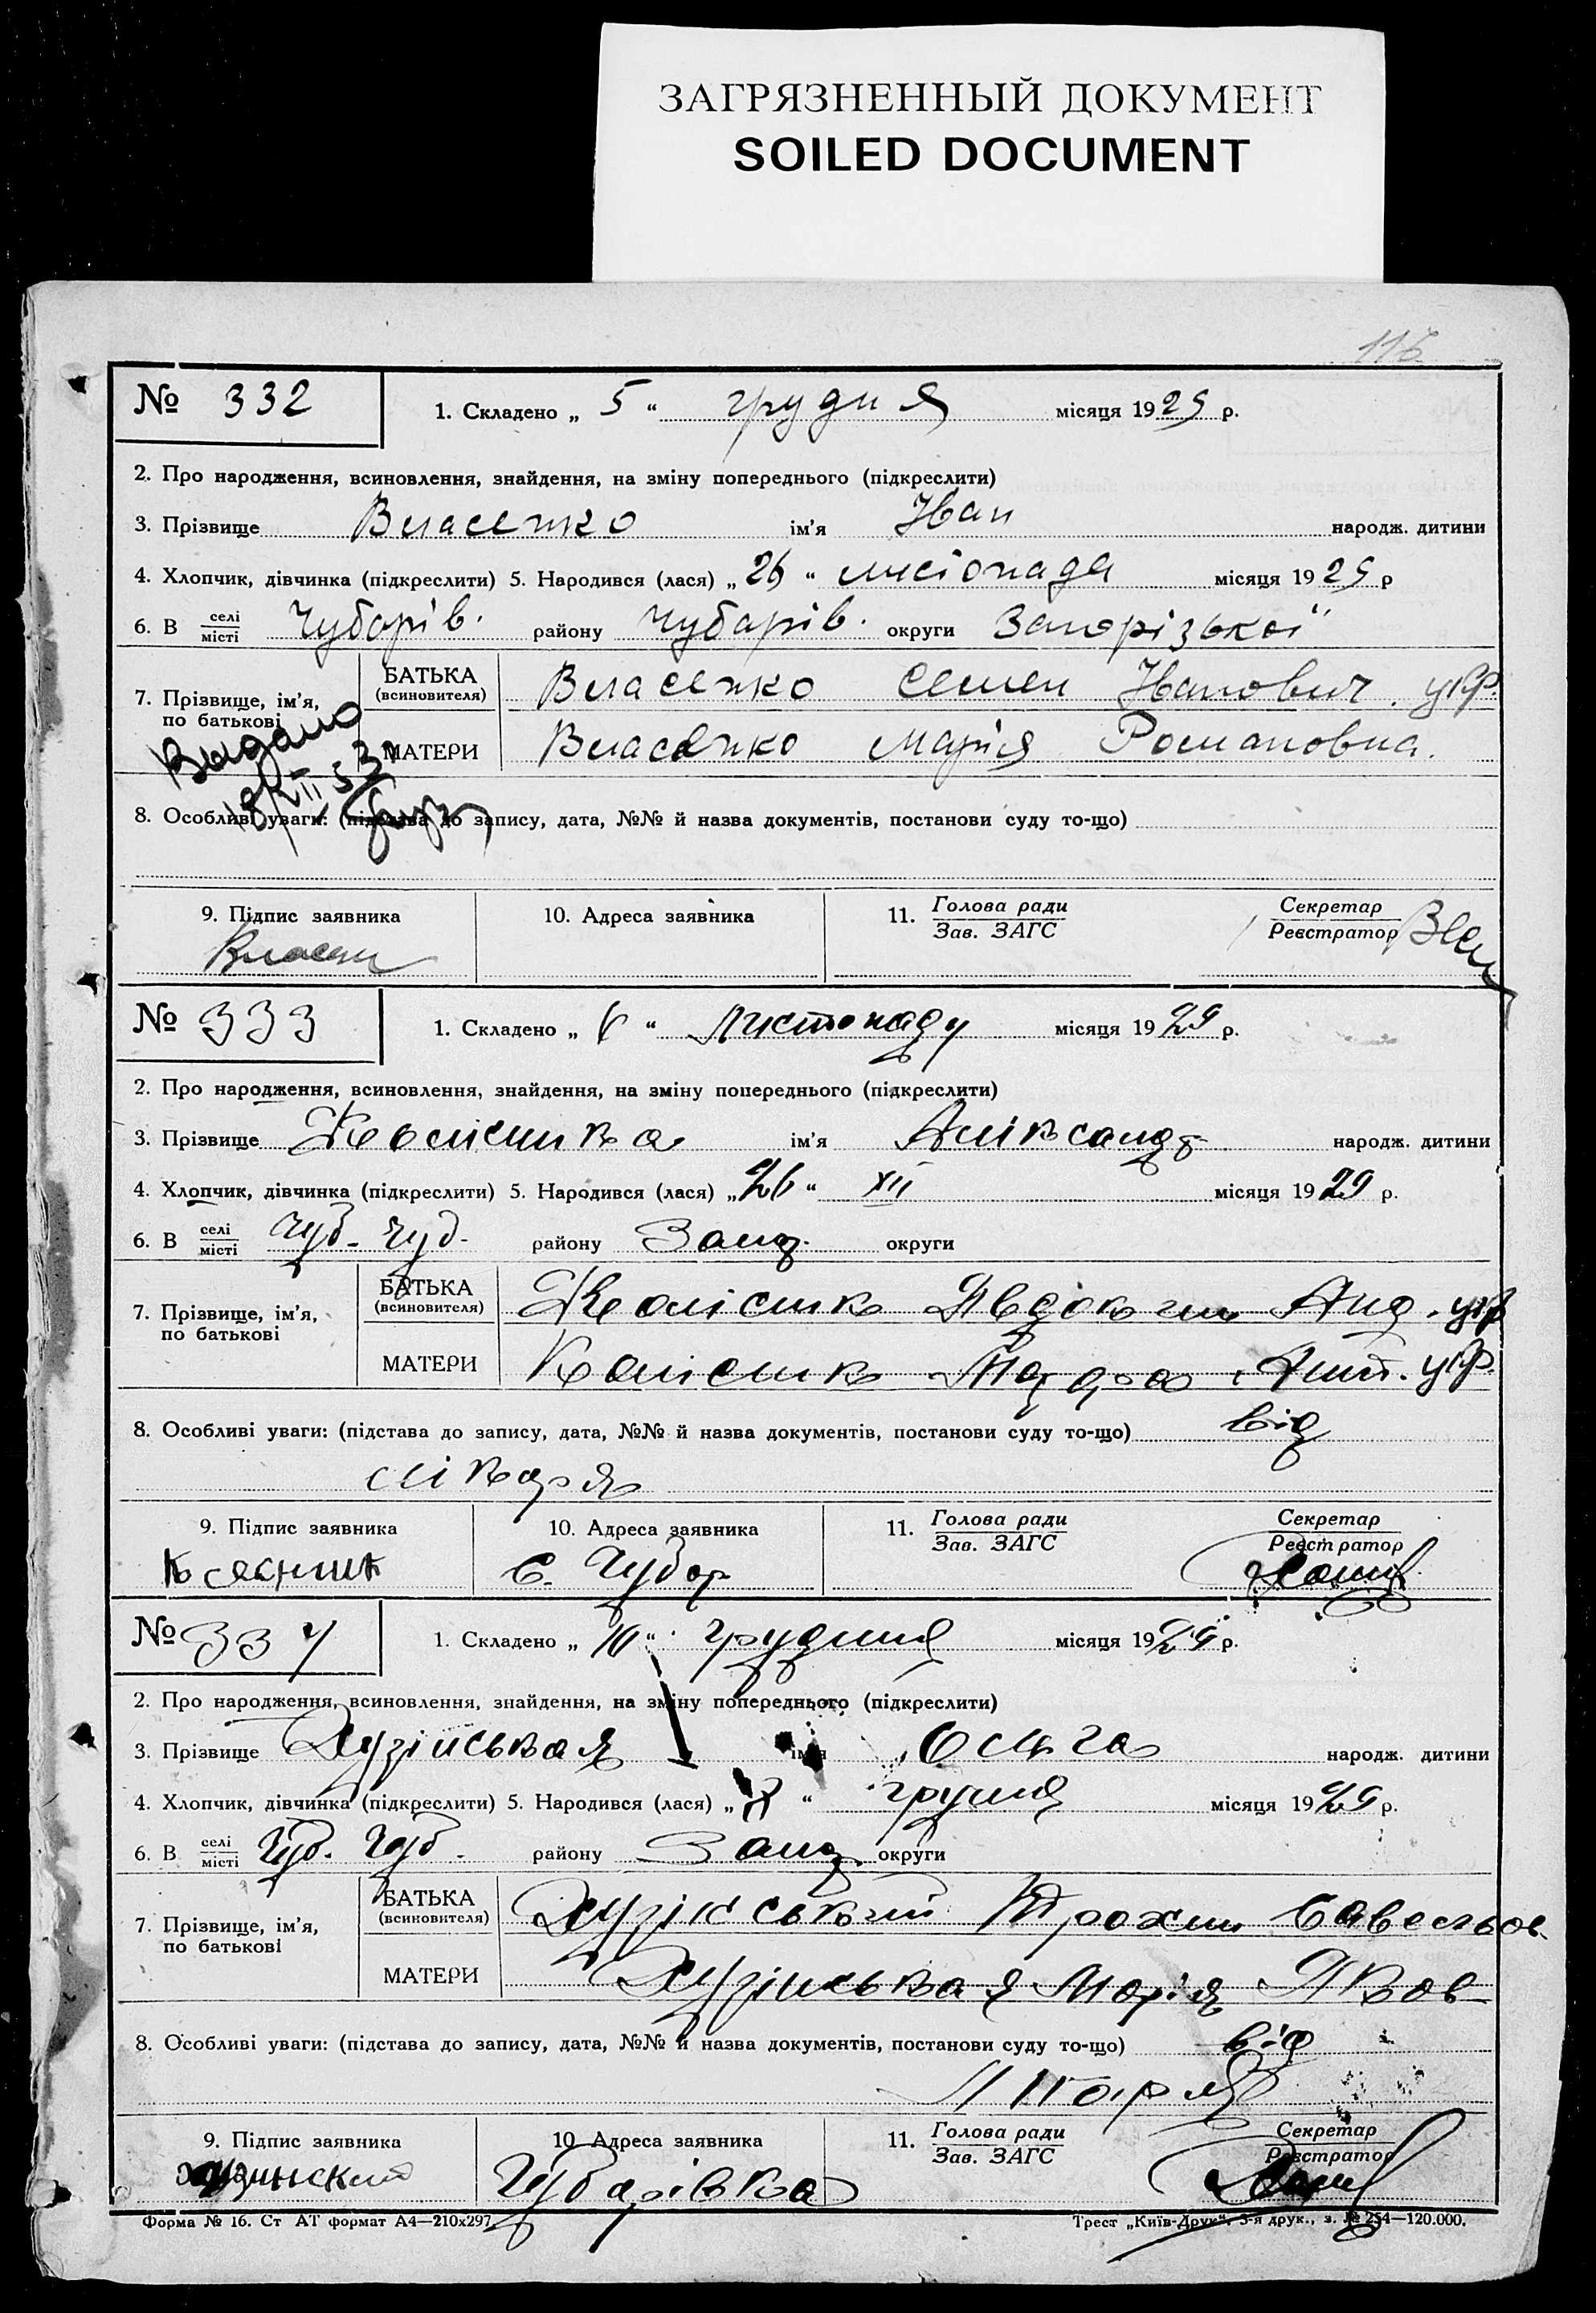 ЗАГРЯЗНЕННЫЙ ДОКУМЕНТ
SOILED DOCUMENT
№ 332
1. Складено „ 5 “ грудня місяця 1929 р.
2. Про народження, всиновлення, знайдення, на зміну попереднього (підкреслити)
3. Прізвище Власенко ім'я Іван народж. дитини
4. Хлопчик, дівчинка (підкреслити) 5. Народився (лася) „ 26 “ листопада місяця 1929 р
6. В селі/місті Чубарів. району Чубарів. округи Запорізької
7. Прізвище, ім'я, по батькові
БАТЬКА (всиновителя) Власенко Семен Іванович. укр.
МАТЕРИ Власенко Марія Романовна.
Выдано
8. Особливі уваги: (підстава до запису, дата, №№ й назва документів, постанови суду то-що)
9. Підпис заявника 10. Адреса заявника 11. Голова ради/Зав. ЗАГС Секретар/Реєстратор
№ 333
1. Складено „ “ Листопаду місяця 1929 р.
2. Про народження, всиновлення, знайдення, на зміну попереднього (підкреслити)
3. Прізвище ім'я народж. дитини
4. Хлопчик, дівчинка (підкреслити) 5. Народився (лася) „ 26 “ XII місяця 1929 р.
6. В селі/місті Чуб. Чуб. району Запор. округи
7. Прізвище, ім'я, по батькові
БАТЬКА (всиновителя) Колісник Явдоким Анд. укр
МАТЕРИ Колісник Ант. укр.
8. Особливі уваги: (підстава до запису, дата, №№ й назва документів, постанови суду то-що) від
лікаря
9. Підпис заявника 10. Адреса заявника 11. Голова ради/Зав. ЗАГС Секретар/Реєстратор
с. Чубар
№ 334
1. Складено „ 10 “ грудния місяця 1929 р.
2. Про народження, всиновлення, знайдення, на зміну попереднього (підкреслити)
3. Прізвище ім'я Ольга народж. дитини
4. Хлопчик, дівчинка (підкреслити) 5. Народився (лася) „ “ місяця 1929 р.
6. В селі/місті Чуб. Чуб. району Запор. округи
7. Прізвище, ім'я, по батькові
БАТЬКА (всиновителя) Трохим Савельов.
МАТЕРИ Марія Яков
8. Особливі уваги: (підстава до запису, дата, №№ й назва документів, постанови суду то-що) від
9. Підпис заявника 10. Адреса заявника 11. Голова ради/Зав. ЗАГС Секретар/Реєстратор
Чубарівка
Форма № 16. Ст АТ формат А4—210х297. Трест „Київ-Друк“. 3-я друк., з. № 254—120.000.